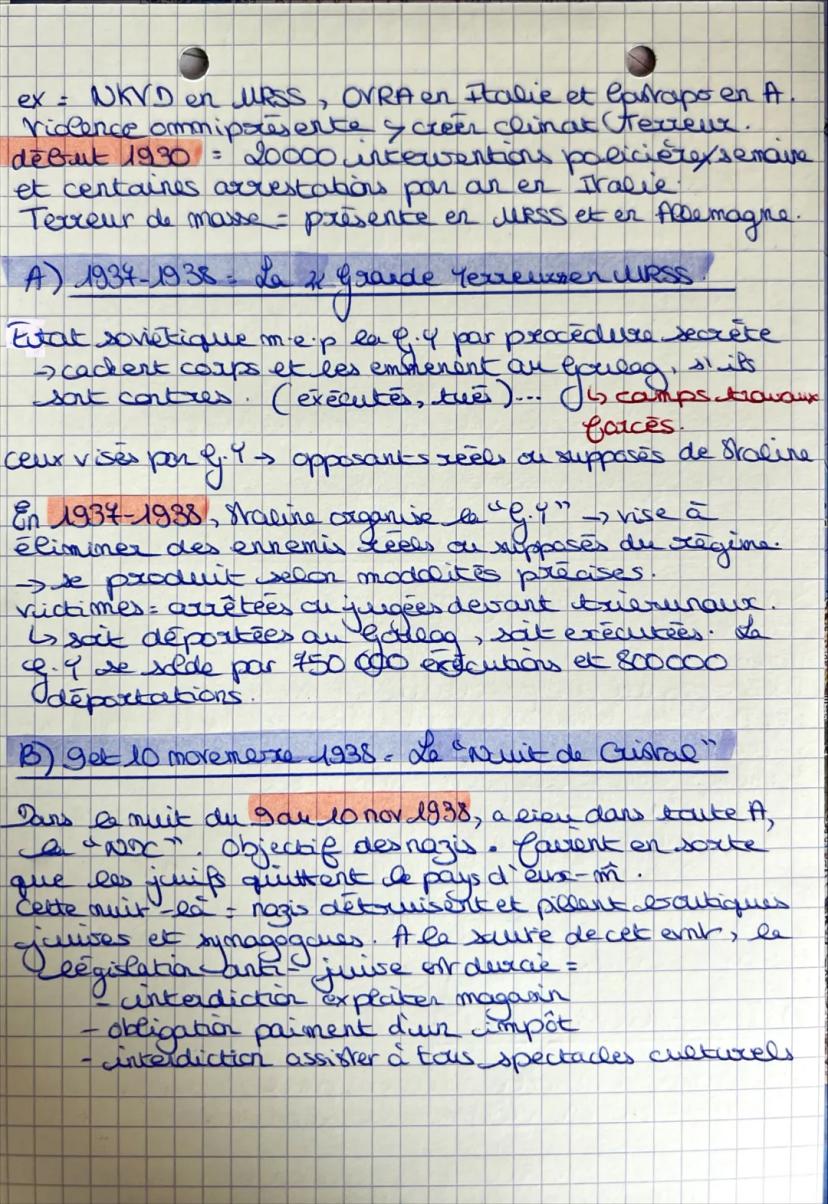 ex = NKVD en URSS, OVRA en Italie et Gestapo en A.
Violence omniprésente → créer climat terreur.
début 1930 = 20000 interventions policière/semaine
et centaines arrestations par an en Italie.
Terreur de masse = présente en URSS et en Allemagne.
A) 1937-1938 = La Grande Terreur en URSS.
Etat soviétique m.e.p la G.T par procédure secrète
→ cachent corps et les emmènent au Goulag, s'ils
sont contres. (exécutés, tués)... ↳ camps travaux
forcés.
ceux visés par G.T → opposants réels ou supposés de Staline
En 1937-1938, Staline organise la "G.T" → vise à
éliminer des ennemis réels ou supposés du régime.
→ se produit selon modalités précises.
victimes = arrêtées ou jugées devant tribunaux.
↳ soit déportées au Goulag, soit exécutées. La
G.T se solde par 750 000 exécutions et 800000
déportations.
B) 9 et 10 novembre 1938 = La "Nuit de Cristal"
Dans la nuit du 9 au 10 nov 1938, a lieu dans toute A,
la "NDC". Objectif des nazis = faire en sorte
que les juifs quittent le pays d'eux-m̂.
Cette nuit-là = nazis détruisent et pillent boutiques
juives et synagogues. A la suite de cet evnt, la
législation anti-juive est durcie =
- interdiction exploiter magasin
- obligation paiment d'un impôt
- interdiction assister à tous spectacles culturels